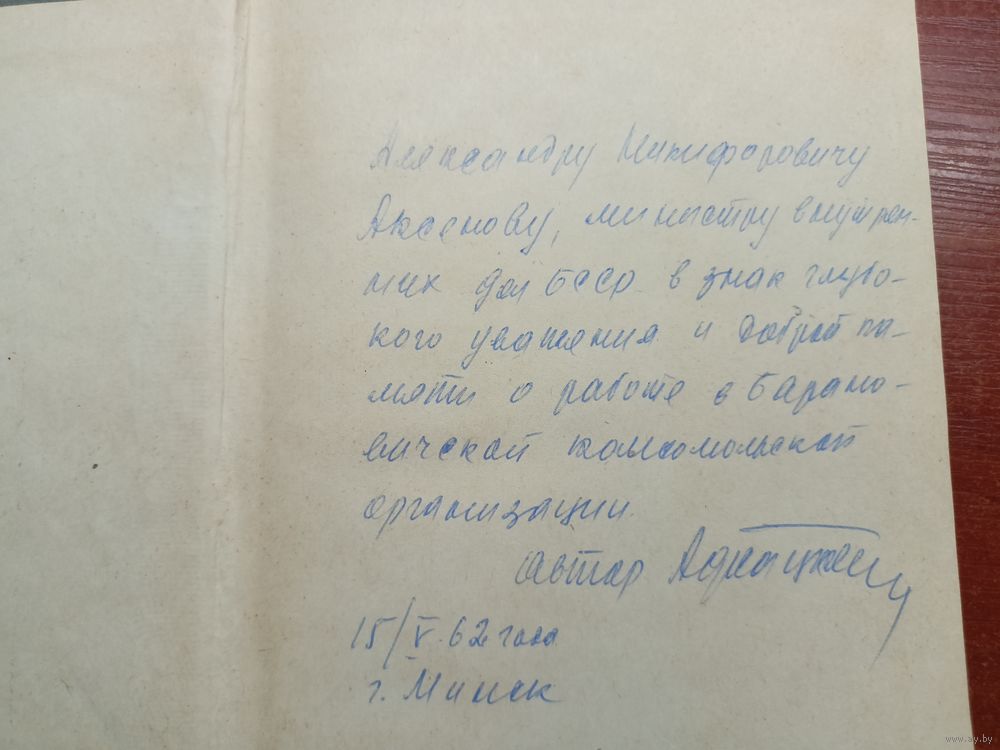 Александру Никифоровичу
Аксенову, министру внутрен-
них дел БССР в знак глубо-
кого уважения и доброй па-
мяти о работе в Барано-
вичской комсомольской
организации.
автор
15/V.62 года
г. Минск
www.ay.by